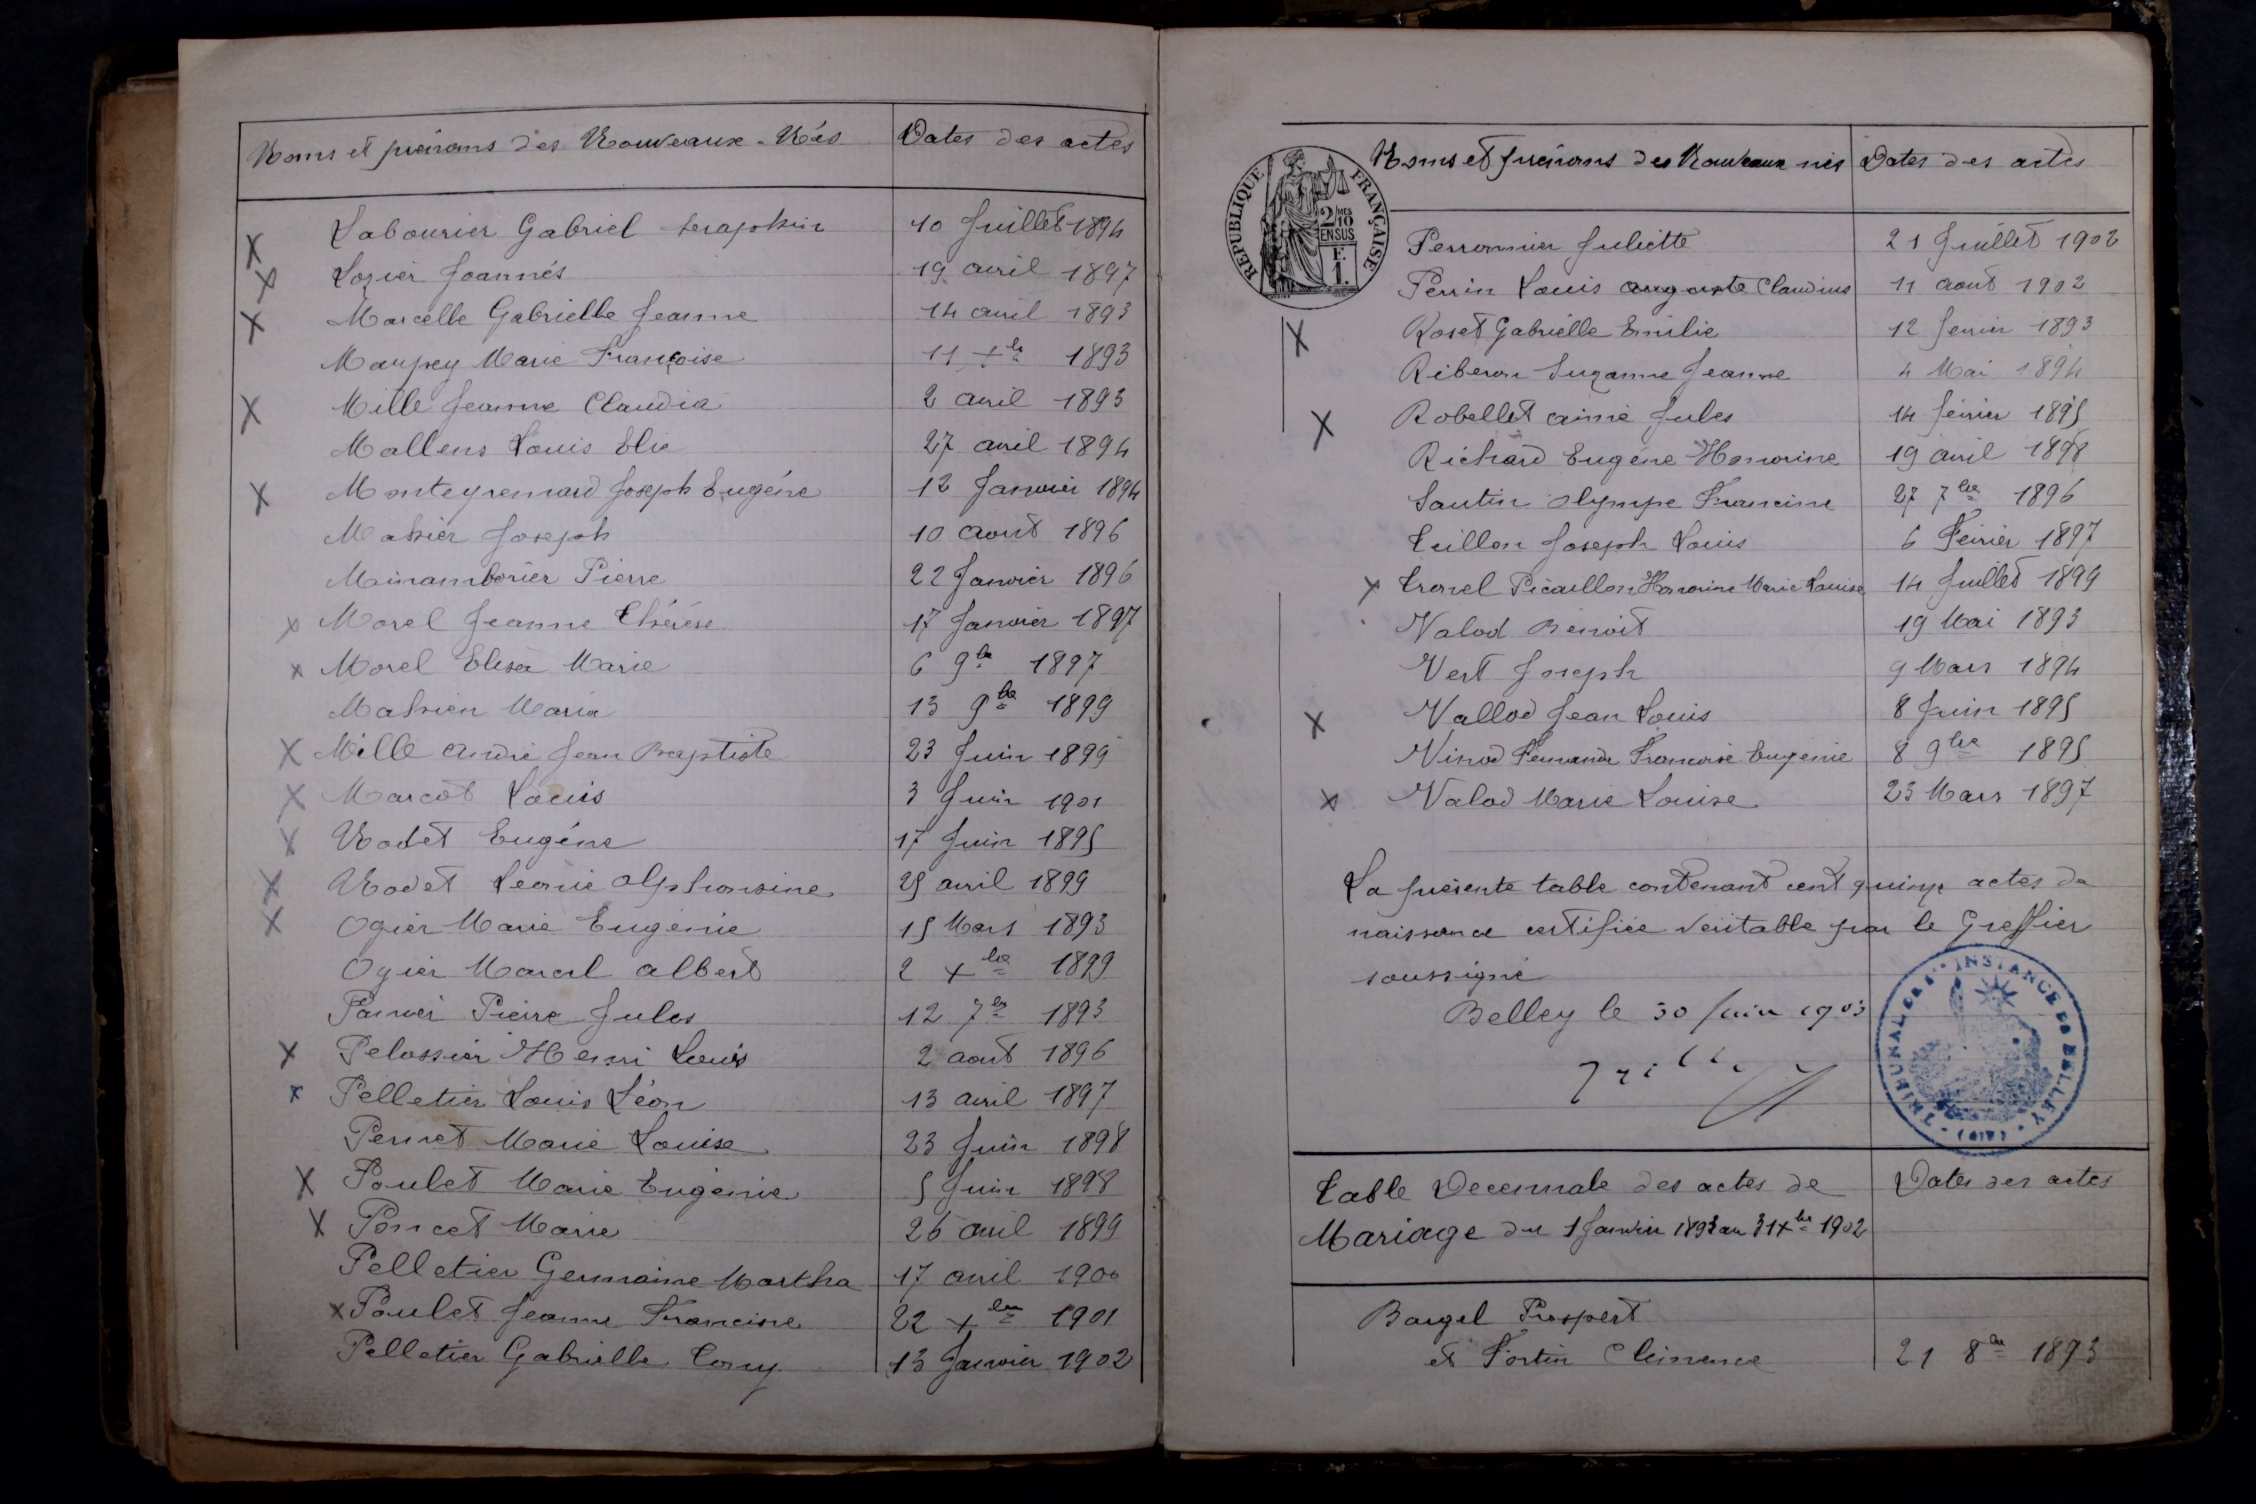 Noms et prénoms des Nouveaux-Nés Dates des actes
X Labourier Gabriel Seraphin 10 Juillet 1894
X Lozier Joannès 19 avril 1897
X Marcelle Gabrielle Jeanne 14 avril 1893
Maupey Marie Françoise 11 Xbre 1893
X Mille Jeanne Claudia 2 avril 1893
Mallens Louis Elie 27 avril 1894
X Monteyremard Joseph Eugène 12 Janvier 1894
Joseph 10 aout 1896
Pierre 22 Janvier 1896
X Morel Jeanne Thérèse 17 Janvier 1897
X Morel Elisa Marie 6 9bre 1897
Maria 13 9bre 1899
X Mille André Jean Baptiste 23 Juin 1899
X Marcot Louis 3 Juin 1901
X Nodet Eugène 17 Juin 1895
X Nodet Léonie Alphonsine 25 avril 1899
X Ogier Marie Eugénie 15 Mars 1893
Ogier Marcel Albert 2 Xbre 1899
Pierre Jules 12 7bre 1893
X Pelossier Henri Louis 2 aout 1896
X Pelletier Louis Léon 13 avril 1897
Perret Marie Louise 23 Juin 1898
X Poulet Marie Eugénie 5 Juin 1898
X Poncet Marie 26 avril 1899
Pelletier Germaine Martha 17 avril 1900
X Poulet Jeanne Francine 22 Xbre 1901
Pelletier Gabrielle 13 Janvier 1902
REPUBLIQUE FRANÇAISE
2/10 MES
EN SUS
F.
1.
Noms et prénoms des Nouveaux nés Dates des actes
Perronnier Juliette 21 Juillet 1902
Perrin Louis auguste Claudius 11 aout 1902
X Roset Gabrielle Emilie 12 fevrier 1893
Riberon Suzanne Jeanne 4 Mai 1894
X Robellet aimé Jules 14 février 1895
Richard Eugène Honorine 19 avril 1898
Santin Olympe Francine 27 7bre 1896
Tuillon Joseph Louis 6 Février 1897
X Tronel Picaillon Honorine Marie Louise 14 Juillet 1899
Valod Benoit 19 Mai 1893
Vert Joseph 9 Mars 1894
X Vallod Jean Louis 8 Juin 1895
Vinod Fernande Françoise Eugénie 8 9bre 1895
X Valod Marie Louise 23 Mars 1897
La présente table contenant cent quinze actes de
naissance certifiée véritable par le Greffier
soussigné
Belley le 30 Juin 1903
TRIBUNAL DE 1ere INSTANCE DE BELLEY (AIN)
Table Decennale des actes de Dates des actes
Mariage du 1 Janvier 1893 au 31 Xbre 1902
Bargel Prospert
et Fortin Clémence 21 8bre 1893